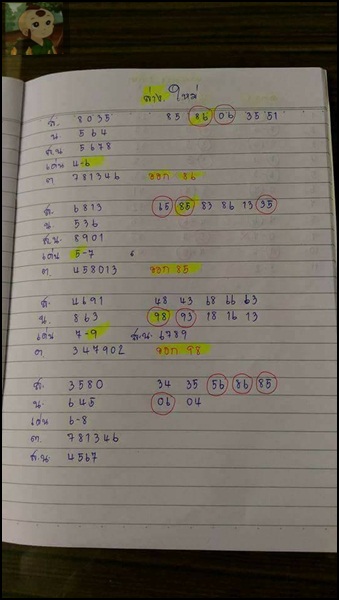 ล่าง ใหล่
ส. 8035 85 86 06 35 51
น 564
ส.น 5678
เด่น 4-6
ต. 781346 ออก 86
ส. 6813 65 85 83 86 13 35
น. 536
ส.น. 8901
เด่น 5-7
ต. 458013 ออก 85
ส. 4691 48 43 68 66 63
น. 863 98 93 18 16 13
เด่น 7-9 ส.น. 6789
ต. 347902 ออก 98
ส. 3580 34 35 56 86 85
น. 645 06 04
เด่น 6-8
ต. 781346
ส.น 4567